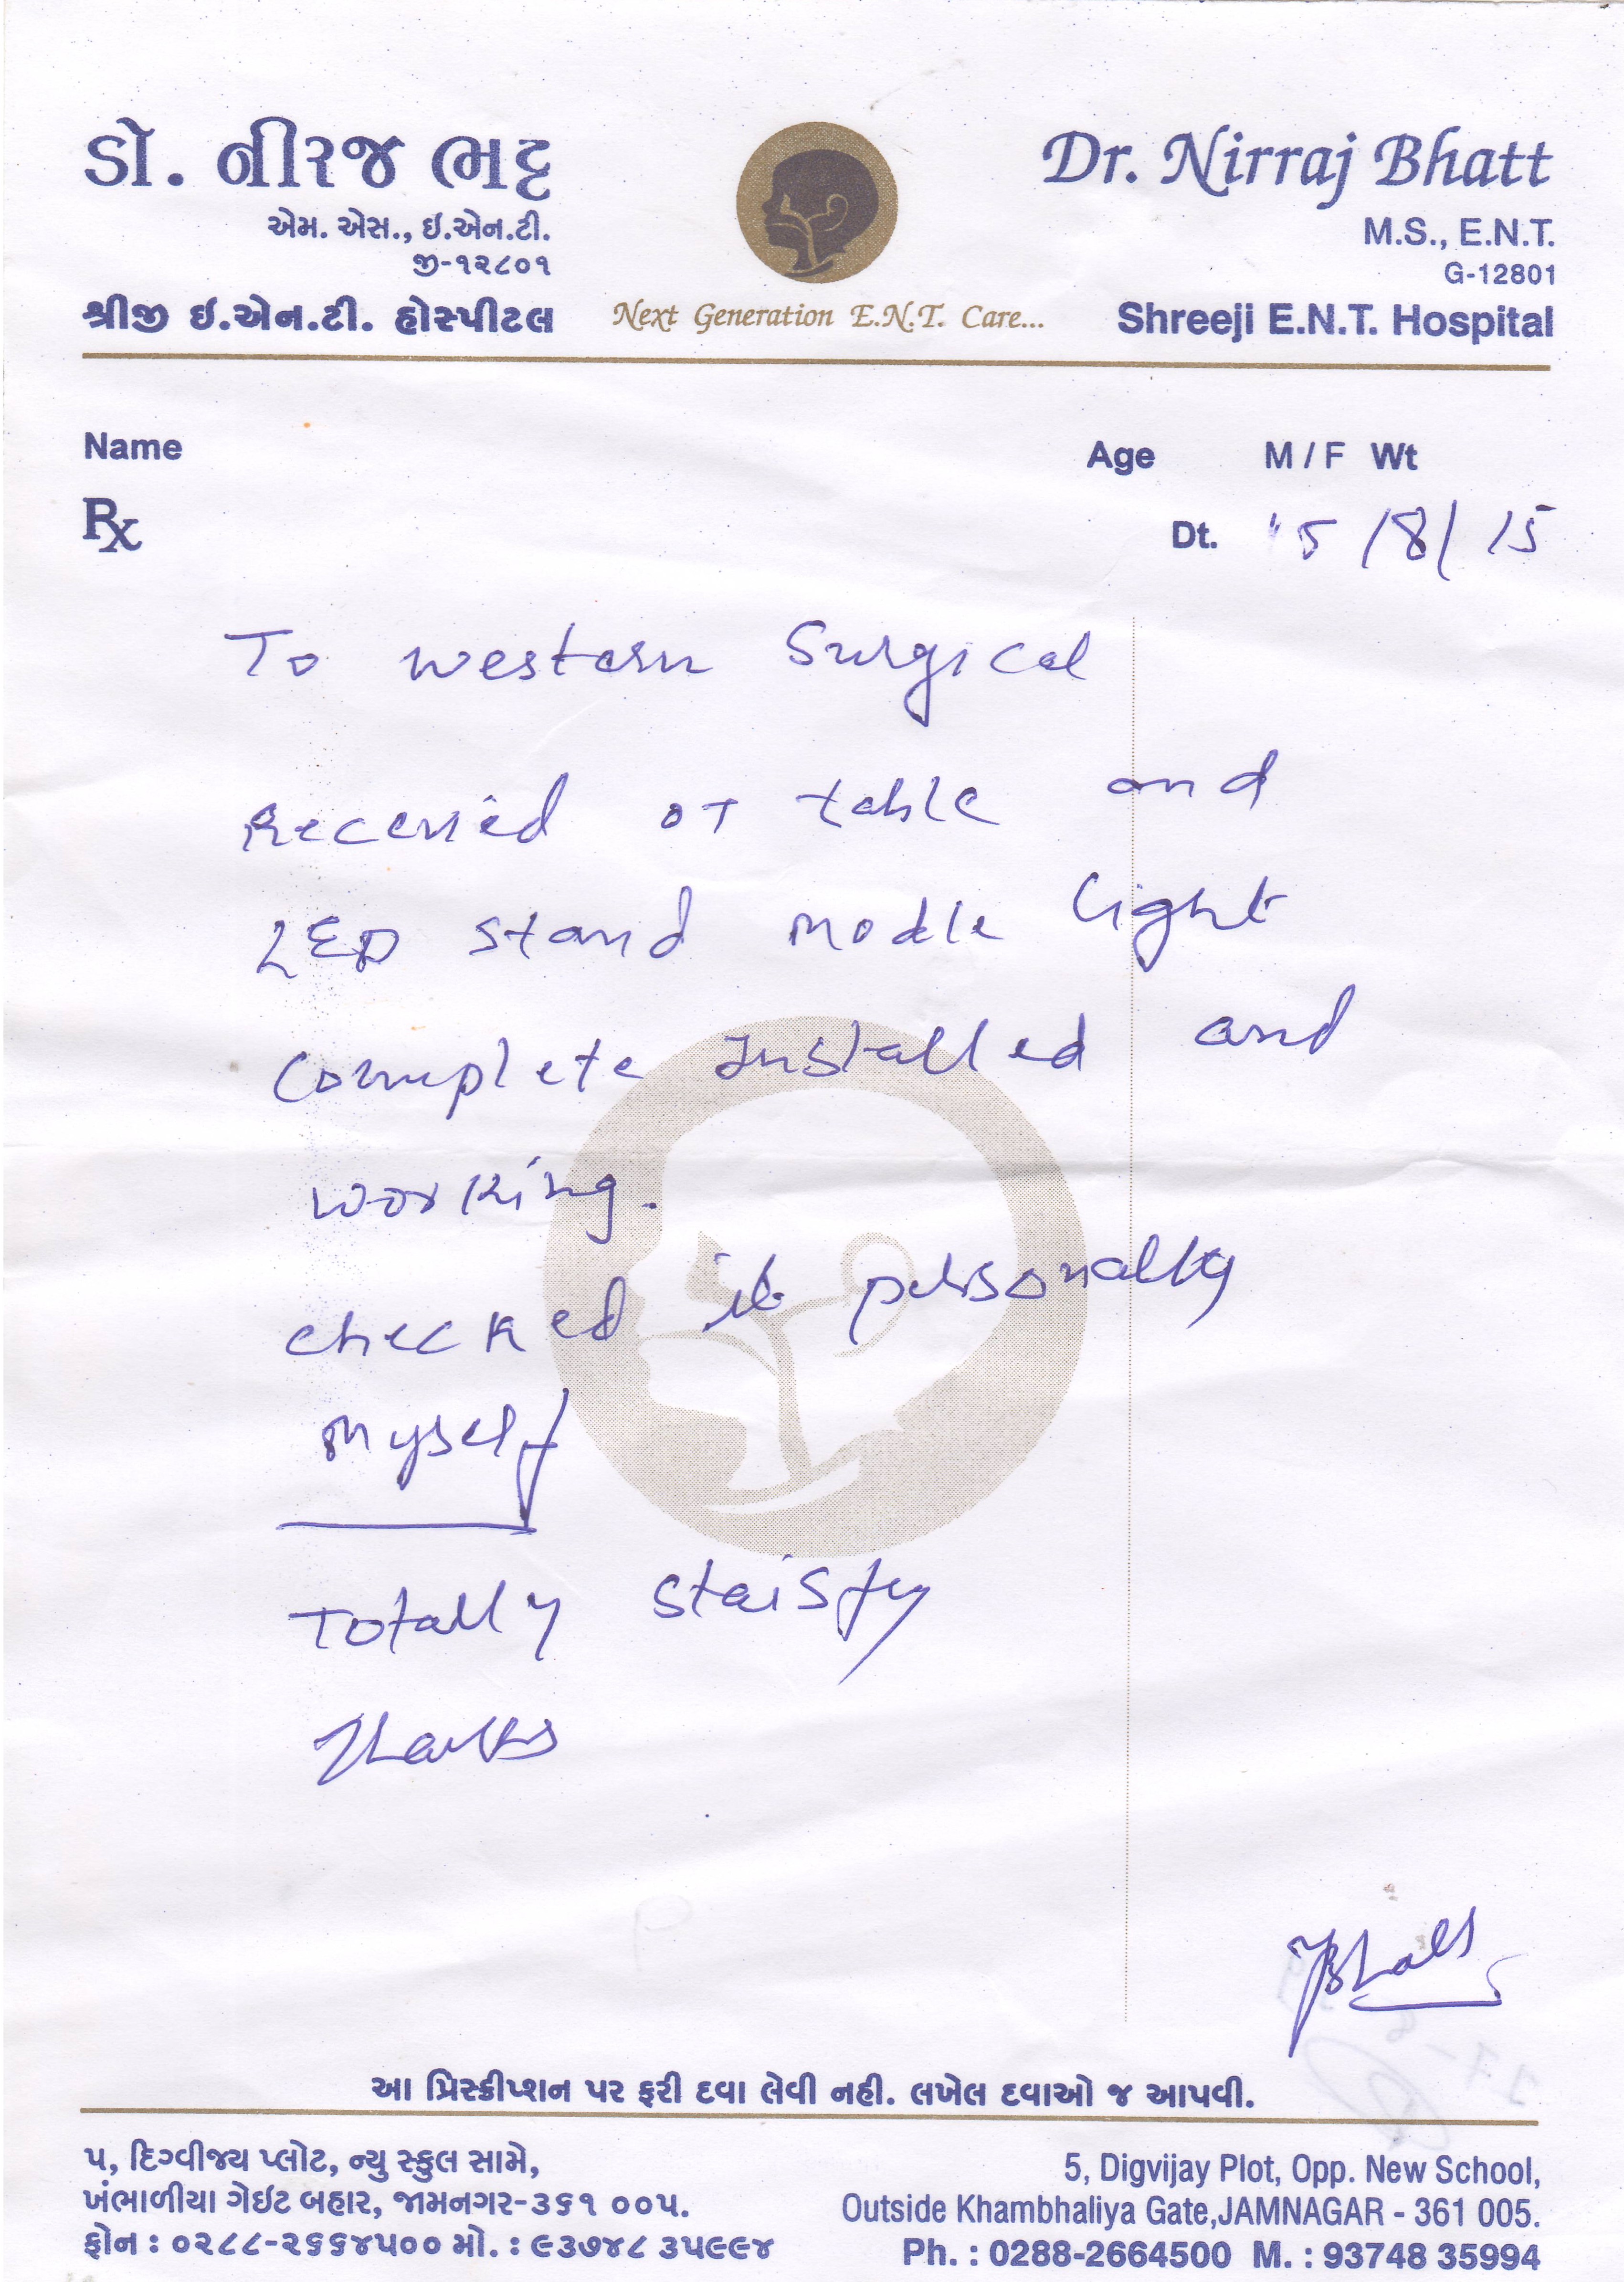 ડો. નીરજ ભટ્ટ
એમ. એસ., ઇ.એન.ટી.
જી-૧૨૮૦૧
શ્રીજી ઇ.એન.ટી. હોસ્પીટલ
Next Generation E.N.T. Care...
Dr. Nirraj Bhatt
M.S., E.N.T.
G-12801
Shreeji E.N.T. Hospital
Name Age M / F Wt
Rx Dt. 15/8/15
To western Surgical
Received OT table and
LED stand modle light
Complete Installed and
working.
checked it personally
myself
Totally staisfy
Thanks
આ પ્રિસ્ક્રીપ્શન પર ફરી દવા લેવી નહી. લખેલ દવાઓ જ આપવી.
૫, દિગ્વીજય પ્લોટ, ન્યુ સ્કુલ સામે,
ખંભાળીયા ગેઇટ બહાર, જામનગર-૩૬૧ ૦૦૫.
ફોન : ૦૨૮૮-૨૬૬૪૫૦૦ મો. : ૯૩૭૪૮ ૩૫૯૯૪
5, Digvijay Plot, Opp. New School,
Outside Khambhaliya Gate,JAMNAGAR - 361 005.
Ph. : 0288-2664500 M. : 93748 35994